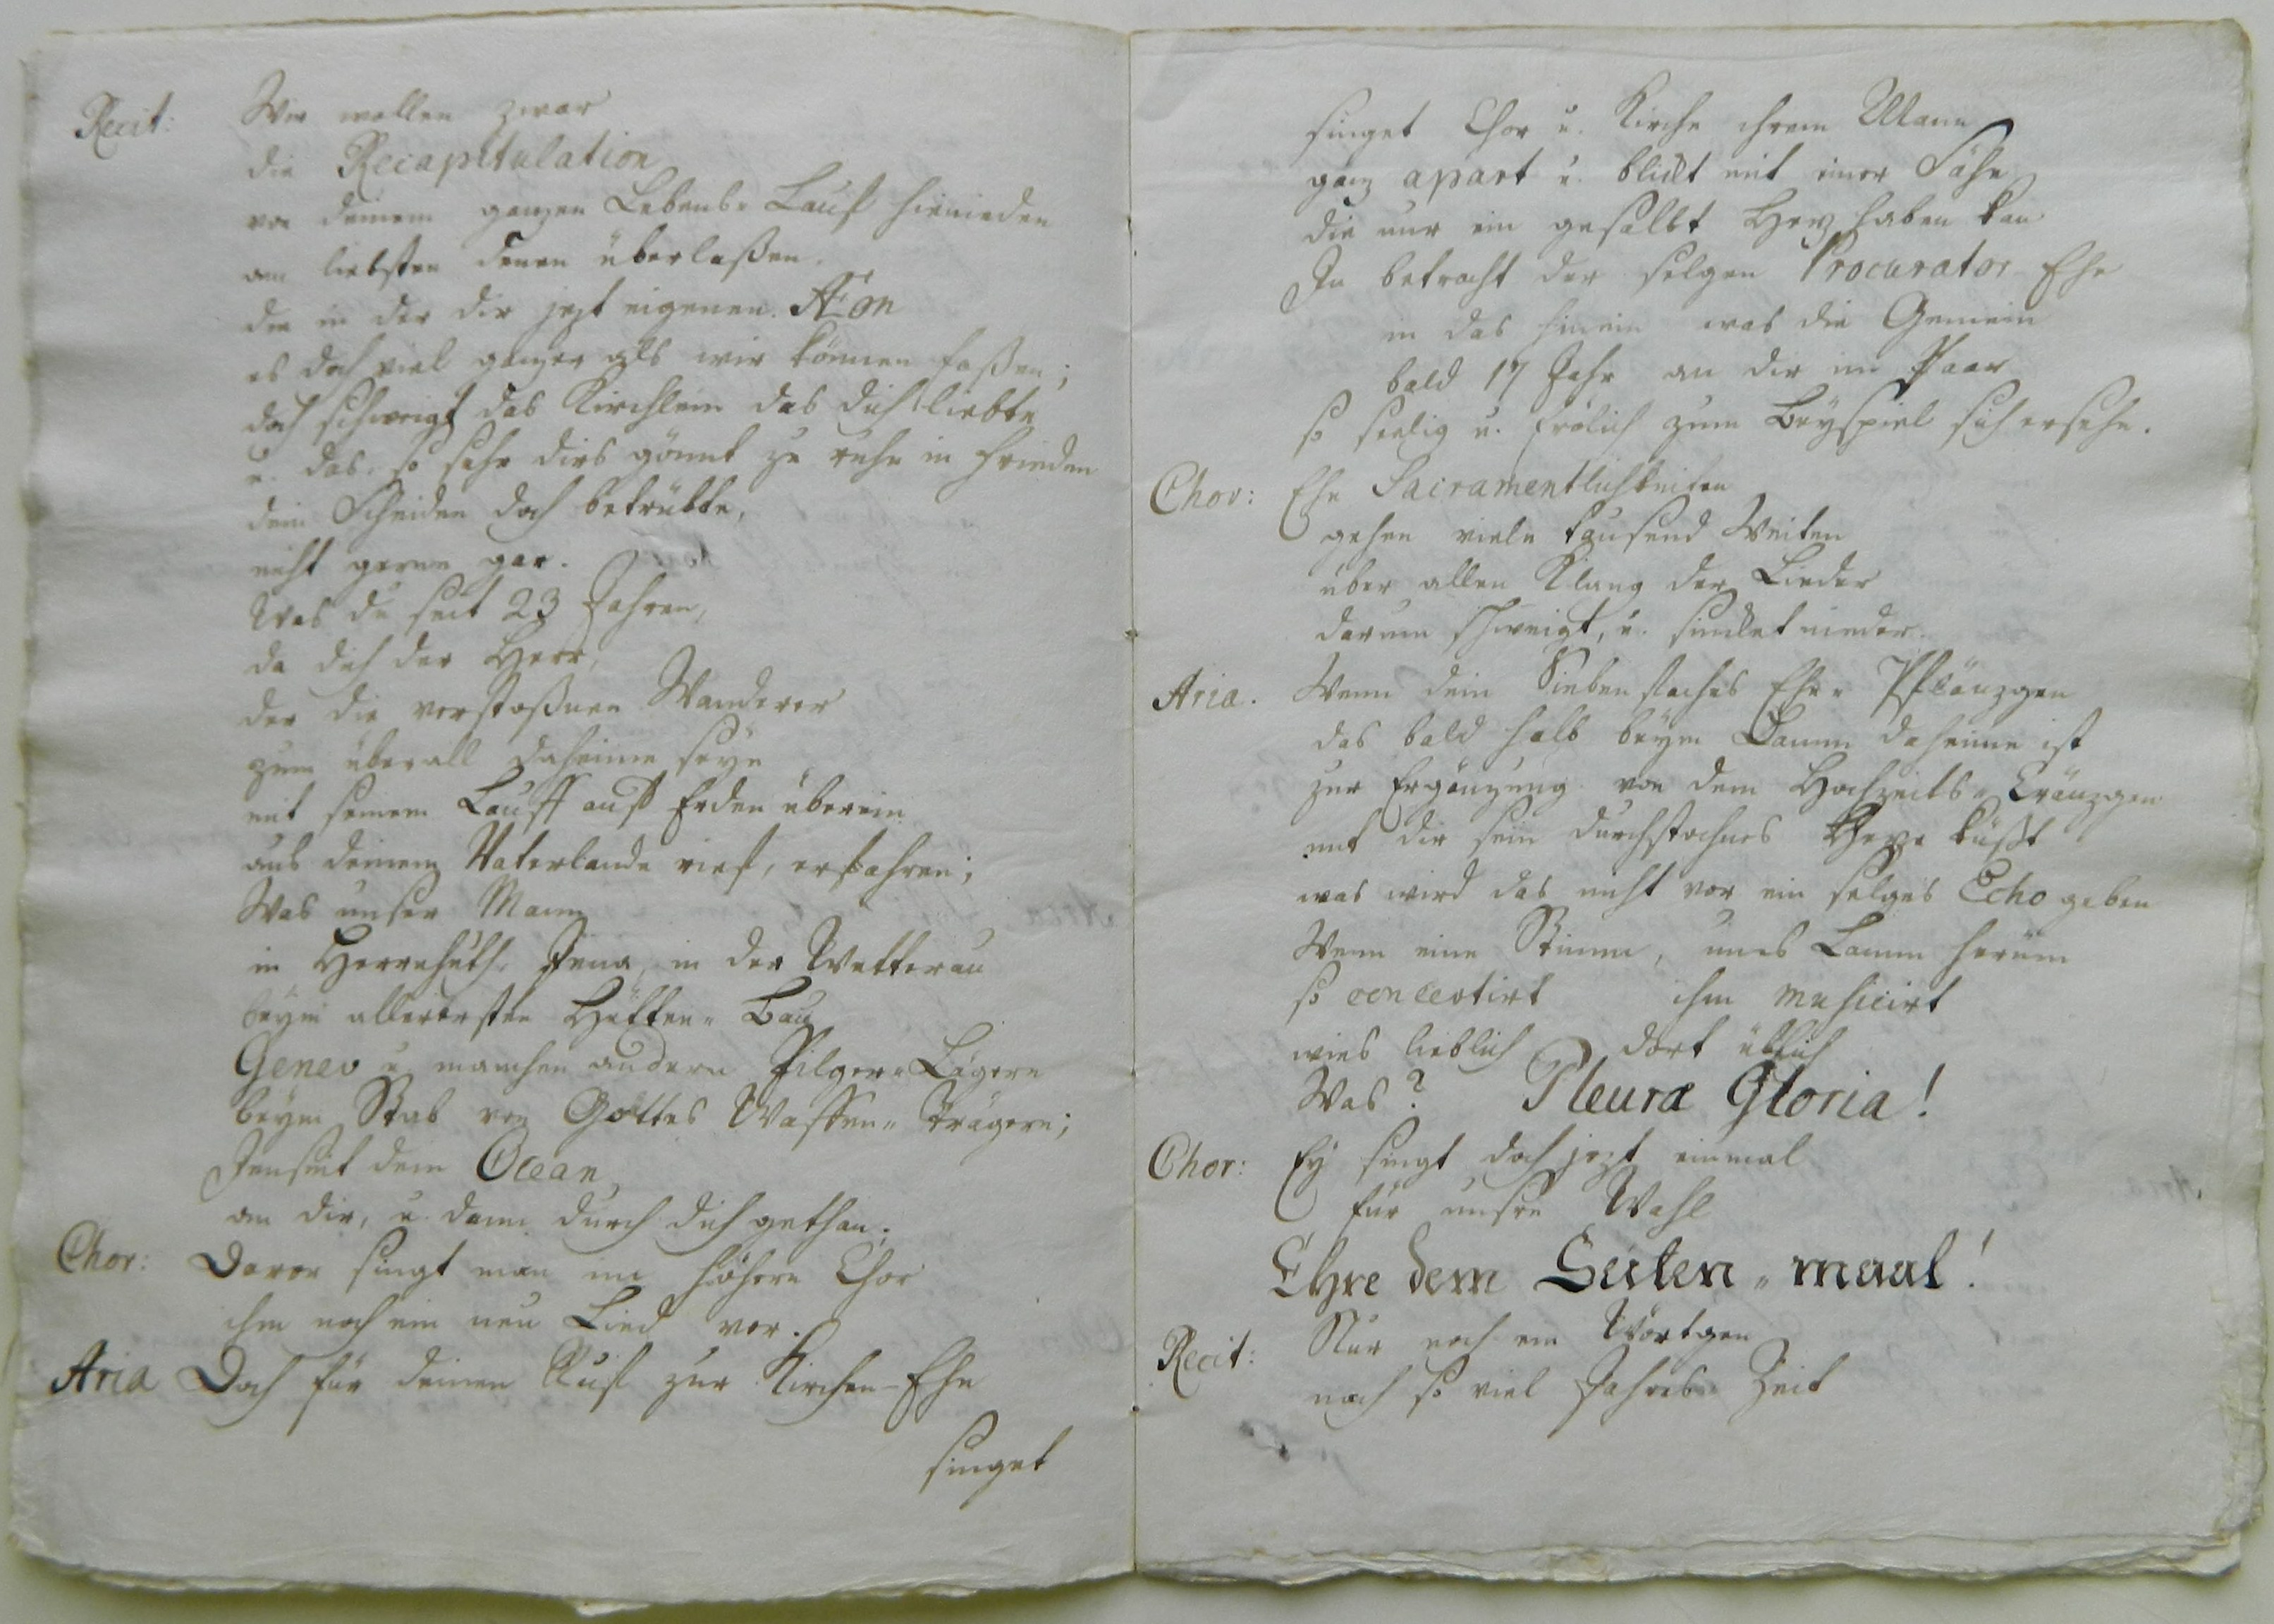 Recit: Wir wollen zwar
die Recapitulation
von deinem ganzen Lebens-Lauf hienieden
am liebsten denen überlaßen,
die in der dir jezt eigenen Æon
es doch viel ganzer als wir können faßen;
doch schweigt das Kirchlein das dich liebte
u. das, so sehr dirs gönnt zu ruhn in Frieden
dein Scheiden doch betrübte,
nicht gerne gar.
Was du seit 23 Jahren,
da dich der Herr,
der die verstoßnen Wanderer
zum überall daheime seyn
mit seinem Lauff auf Erden überein
aus deinem Vaterlande rief, erfahren;
Was unser Mann
in Herrnhuth, Jena, in der Wetterau
beym allerersten Hütten-Bau
Genev u. manchen andern Pilger-Lägern
beym Stab von Gottes Waffen-Trägern;
Jenseit dem Ocean
an dir, u. dann durch dich gethan;
Chor: Davor singt man im höhern Chor
ihm noch ein neu Lied vor.
Aria Doch für deinen Ruf zur Kirchen-Ehe
singet
singet Chor u. Kirche ihrem Mann
ganz apart u. blickt mit einer Sähe
die nur ein gesalbt Herz haben kan
In betracht der selgen Procurator-Ehe
in das hinein was die Gemein
bald 17 Jahr an dir im Paar
so seelig u. frölich zum Beyspiel sich ersehe.
Chor: Ehe Sacramentlichkeiten
gehen viele tausend Weiten
über allen Klang der Lieder
darum schweigt, u. sinket nieder.
Aria. Wenn dein Siebenfaches Ehe-Pflänzgen
das bald halb beym Lamm daheime ist
zur Ergänzung von dem Hochzeits-Cränzgen
mit dir sein durchstochnes Herze küßt
was wird das nicht vor ein selges Echo geben
Wenn eine Stimm, ums Lamm herüm
so concertirt ihm musicirt
wies lieblich dort üblich
Was? Pleuræ Gloria!
Chor: Ey singt doch jezt einmal
für unsre Wahl
Ehre dem Seiten-maal!
Recit: Nur noch ein Wörtgen
nach so viel Jahres-Zeit